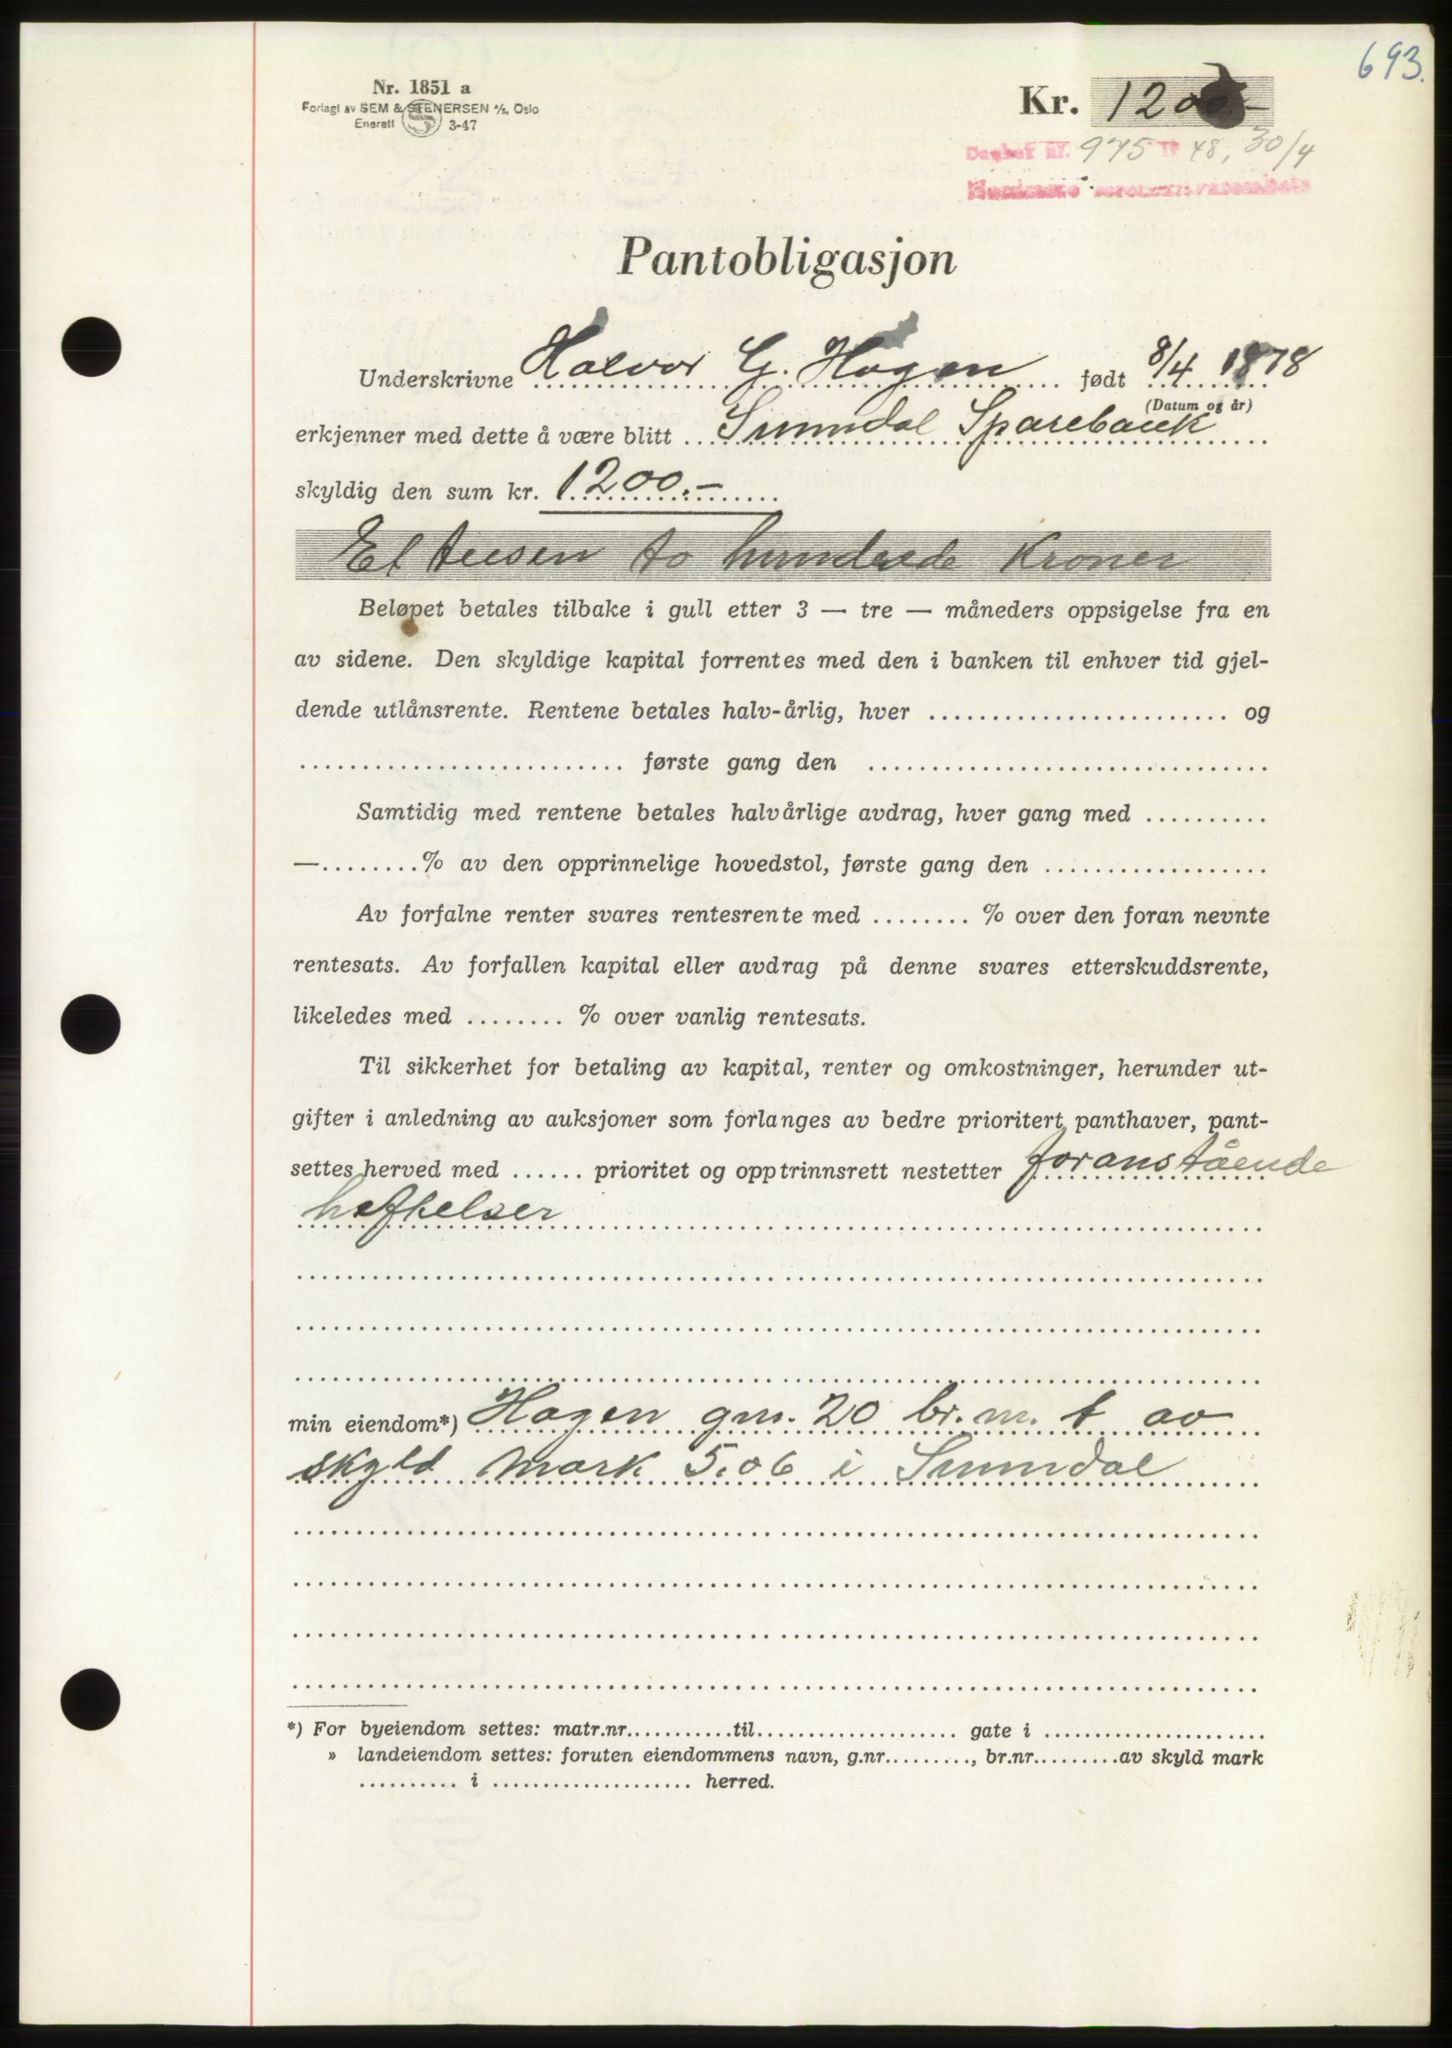 693.
Nr. 1851 a
Forlagt av SEM & STENERSEN A/S, Oslo
Enerett S 3-47
Kr. 1200.-
Dagbok nr. 975 19 48, 30/4
Nordmøre sorenskriverembete
Pantobligasjon
Underskrivne Halvor G. Hagen født 8/4 1878
(Datum og år)
erkjenner med dette å være blitt Sunndal Sparebank
skyldig den sum kr. 1200.-
Et tusen to hundrede Kroner
Beløpet betales tilbake i gull etter 3 — tre — måneders oppsigelse fra en
av sidene. Den skyldige kapital forrentes med den i banken til enhver tid gjel-
dende utlånsrente. Rentene betales halv-årlig, hver ........................ og
.......................... første gang den ................................
Samtidig med rentene betales halvårlige avdrag, hver gang med ..........
—........% av den opprinnelige hovedstol, første gang den ..................
Av forfalne renter svares rentesrente med ........ % over den foran nevnte
rentesats. Av forfallen kapital eller avdrag på denne svares etterskuddsrente,
likeledes med ........ % over vanlig rentesats.
Til sikkerhet for betaling av kapital, renter og omkostninger, herunder ut-
gifter i anledning av auksjoner som forlanges av bedre prioritert panthaver, pant-
settes herved med ...... prioritet og opptrinnsrett nestetter foranstående
heftelser
min eiendom*) Hagen gnr. 20 br.nr. 1 av
skyld mark 5.06 i Sunndal
*) For byeiendom settes: matr.nr...........til..................... gate i .......................
» landeiendom settes: foruten eiendommens navn, g.nr........., br.nr.........av skyld mark
.......... i .................... herred.